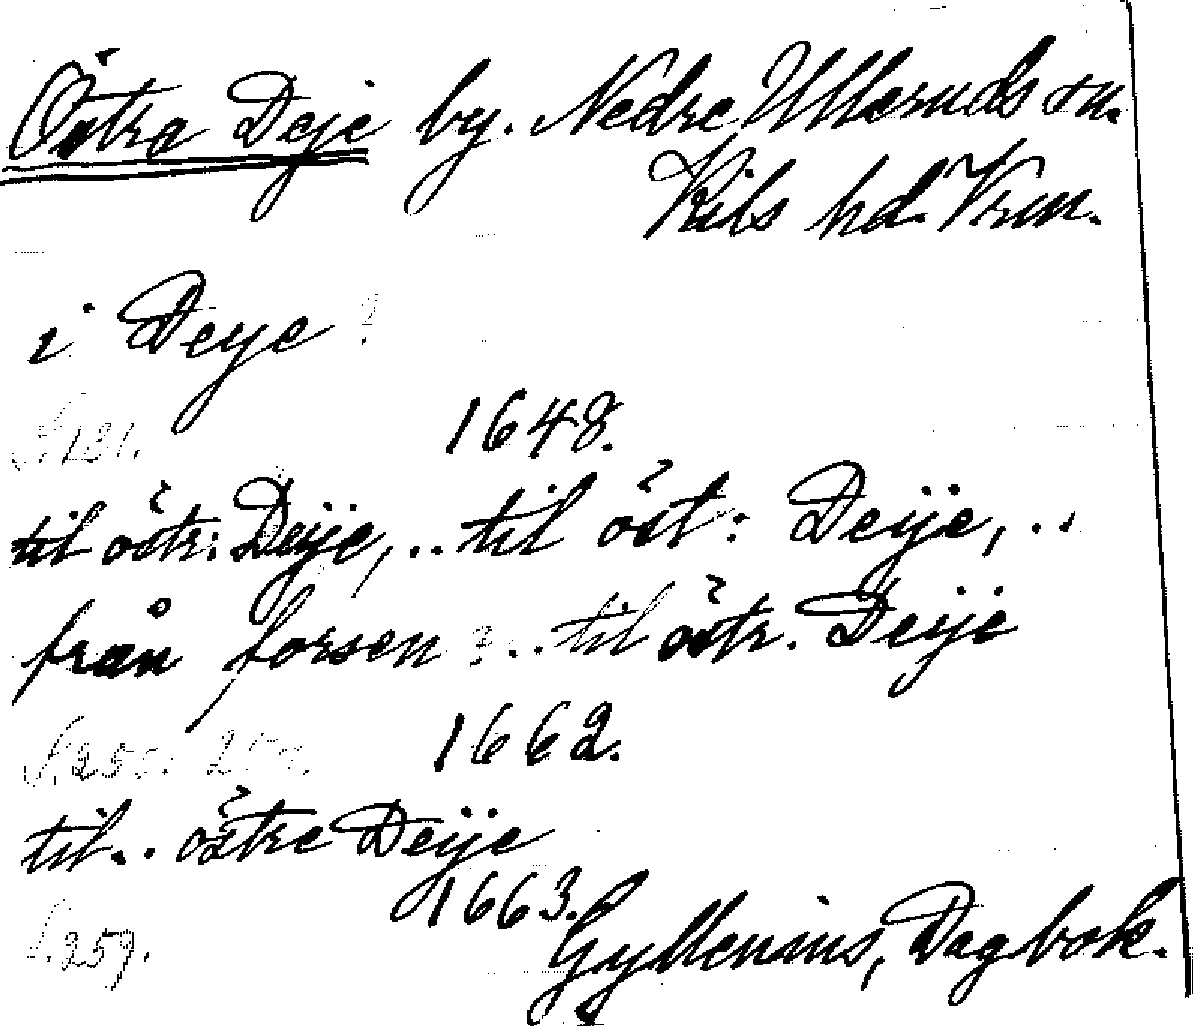 Östra Deje by. Nedre Ulleruds sn.
Kils hd. Vrm.
i Deye
S. 131. 1648.
til östr: Deije, .. til öst: Deije, ..
från forsen .. til östr. Deije
1662.
til .. östre Deije
1663.
S. 259. Gyllenius, Dagbok.